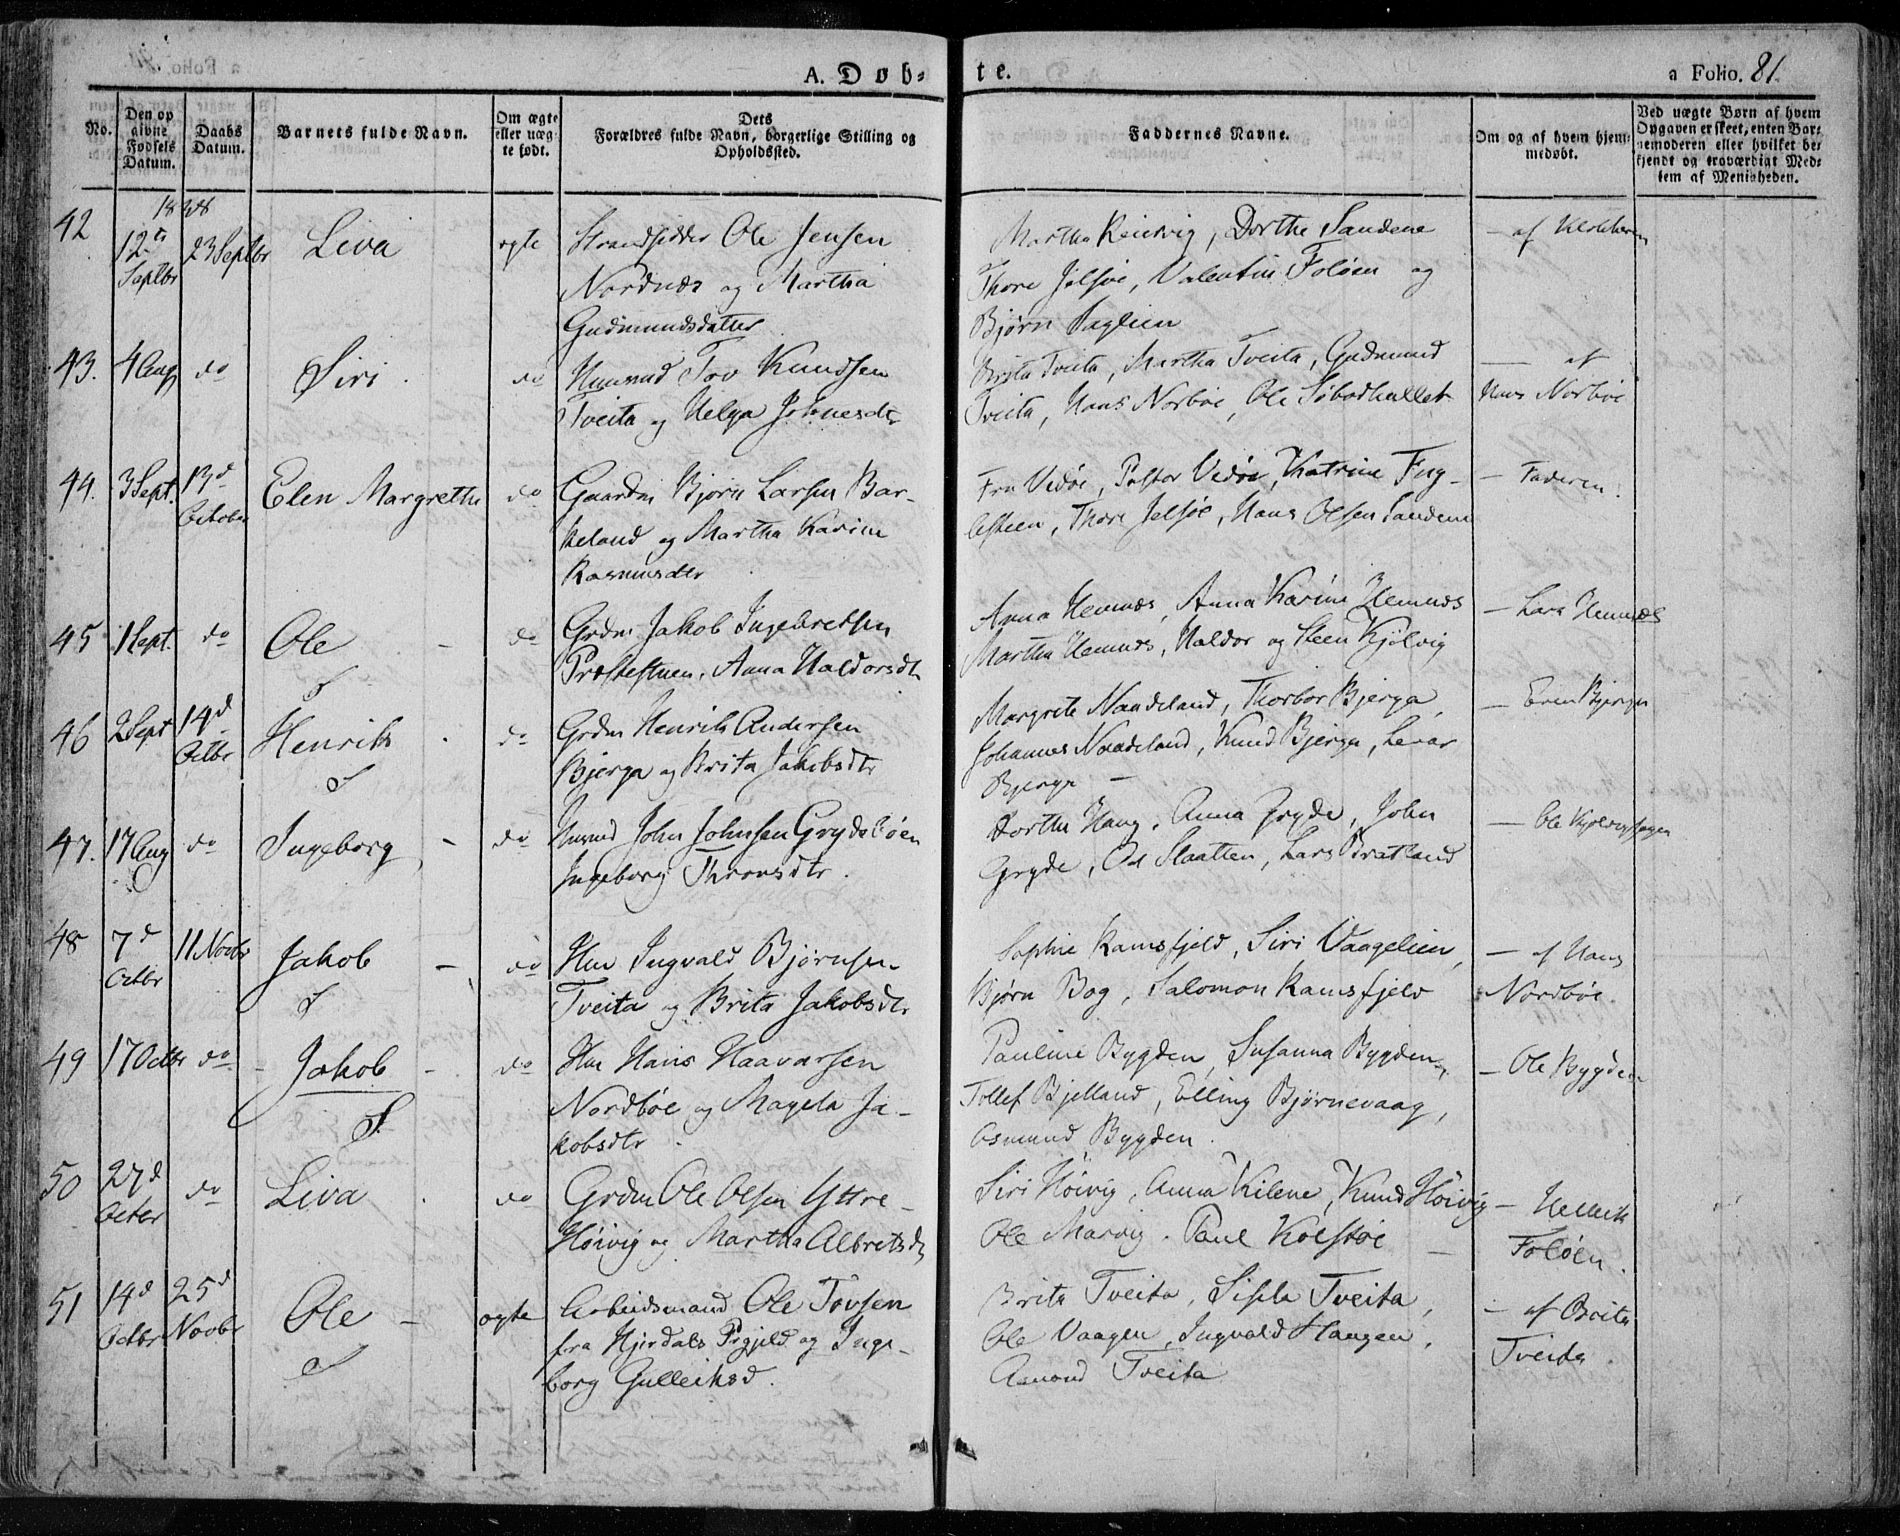 A. Döb-
te.
a Folio. 81.
No.
Den op
givne
Fødsels
Datum.
Daabs
Datum.
Barnets fulde Navn.
Om ægte
eller uæg-
te født.
Dets
Forældres fulde Navn, borgerlige Stilling og
Opholdssted.
Faddernes Navne.
Om og af hvem hjem-
medøbt.
Ved uægte Børn af hvem
Opgaven er skeet, enten Bar-
nemoderen eller hvilket be-
kjendt og troværdigt Med-
lem af Menigheden.
42
12te
Septbr
23 Septbr
Liva
ægte
Strandsidder Ole Jensen
Nordnæs og Martha
Gudmundsdatter
Martha, Dorthe Sandene
Thore Jelsøe, Valentin Foløen og
Bjørn
- af
43.
4 Aug
do
Siri
do
Huusmd Tov Knudsen
Tveita og Helga Johnesdr
Brita Tveita, Martha Tveita, Gudmund
Tveita, Hans Norbøe, Ole
- af
Hans Norbøe
44.
3 Sept.
13d
October
Elen Margrethe
do
Gaardm Bjørn Larsen Bar-
keland og Martha Karine
Rasmusdtr
Fru Vidøe, Pastor Vidøe, Katrine Fug-
lesteen, Thore Jelsøe, Hans Olsen Sandene
- Faderen.
45
1 Sept.
do
Ole
do
Grdm Jakob Ingebretsen
Præstestuen, Anna Haldorsdtr
Anna Hemnæs, Anna Karine Hemnæs
Martha Hemnæs, Haldor og Steen Kjølvig
- Lars Hemnæs
46
2 Sept
14d
Octbr
Henrik
do
Grdm Henrik Andersen
Bjerga og Brita Jakobsdtr
Margrete Naadeland, Thorbor Bjerga,
Johannes Naadeland, Knud Bjerga,
Bjerga -
- Even Bjerga
47.
17 Aug
do
Ingeborg
do
Husmd John Johnsen Grydebøen
Ingeborg Thronsdtr.
Dorthe Haug, Anna Gryde, John
Gryde, Od Slaatten, Lars Bratland
- Ole
48
7d
Octbr
11 Novbr
Jakob
do
Hm Ingvald Bjørnsen
Tveita og Brita Jakobsdtr
Sophie Ramsfjeld, Siri Vaagelien,
Bjørn Bog, Salomon Ramsfjeld
- af Hans
Nordbøe.
49
17 Octbr
do
Jakob
do
Hm Hans Haavarsen
Nordbøe og Magela Ja-
kobsdtr.
Pauline Bygden, Susanna Bygden,
Tollef Bjelland, Elling Bjørnevaag,
Osmund Bygden.
- Ole Bygden
50
27d
Octbr
do
Liva
do
Grdm Ole Olsen Yttre-
Høivig og Martha Albretsdtr
Siri Høivig, Anna Kilene, Knud Høivig
Ole Marvig. Paul Kolstøe -
- Hellek
Foløen.
51
14d
Octbr
25d
Novbr
Ole
ægte
Arbeidsmand Ole Tovsen
fra Hjerdals Prgjeld og Inge-
borg Gulleiksd.
Brita Tveita, Sisela Tveita,
Ole Vaagen, Ingvald Haugen,
Asmond Tveita
- af Brita
Tveita.